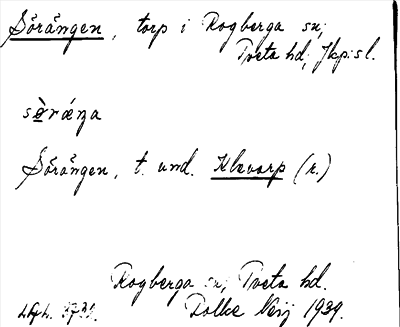 Sörängen, torp i Rogberga sn;
Tveta hd, Jkp:sl.
Sörängen, t. und. Klevarp (r.)
Rogberga sn; Tveta hd.
Folke Neij 1939.